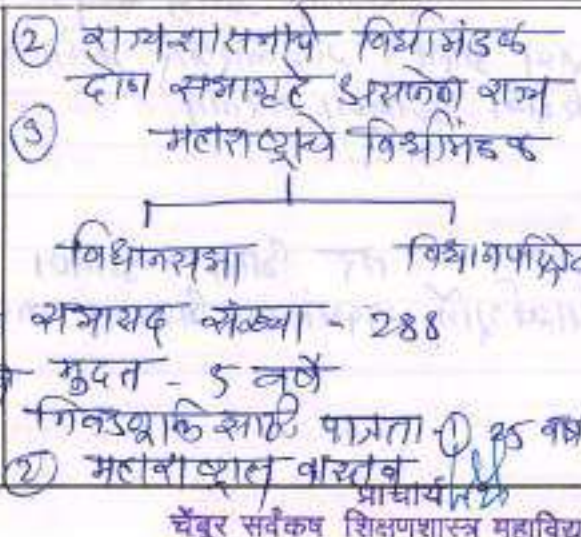 ② राज्यशासनाचे विधीमंडळ
दोन सभागृहे असलेली राज्य
③ महाराष्ट्राचे विधीमंडळ
विधानसभा विधानपरिषद
सभासद संख्या - 288
मुदत - 5 वर्षे
निवडणूकीसाठी पात्रता ① 25 वर्षे
② महाराष्ट्रात वास्तव्य
प्राचार्य
चेंबूर सर्वंकष शिक्षणशास्त्र महाविद्य